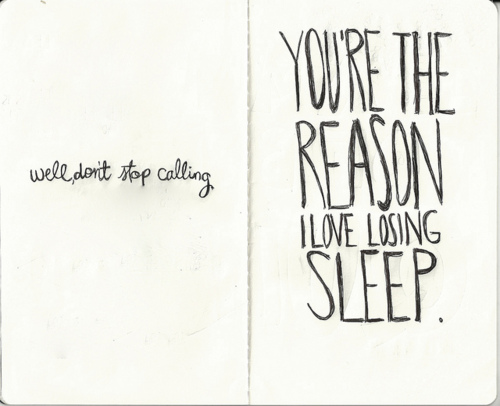 well, don't stop calling
YOU'RE THE
REASON
I LOVE LOSING
SLEEP.